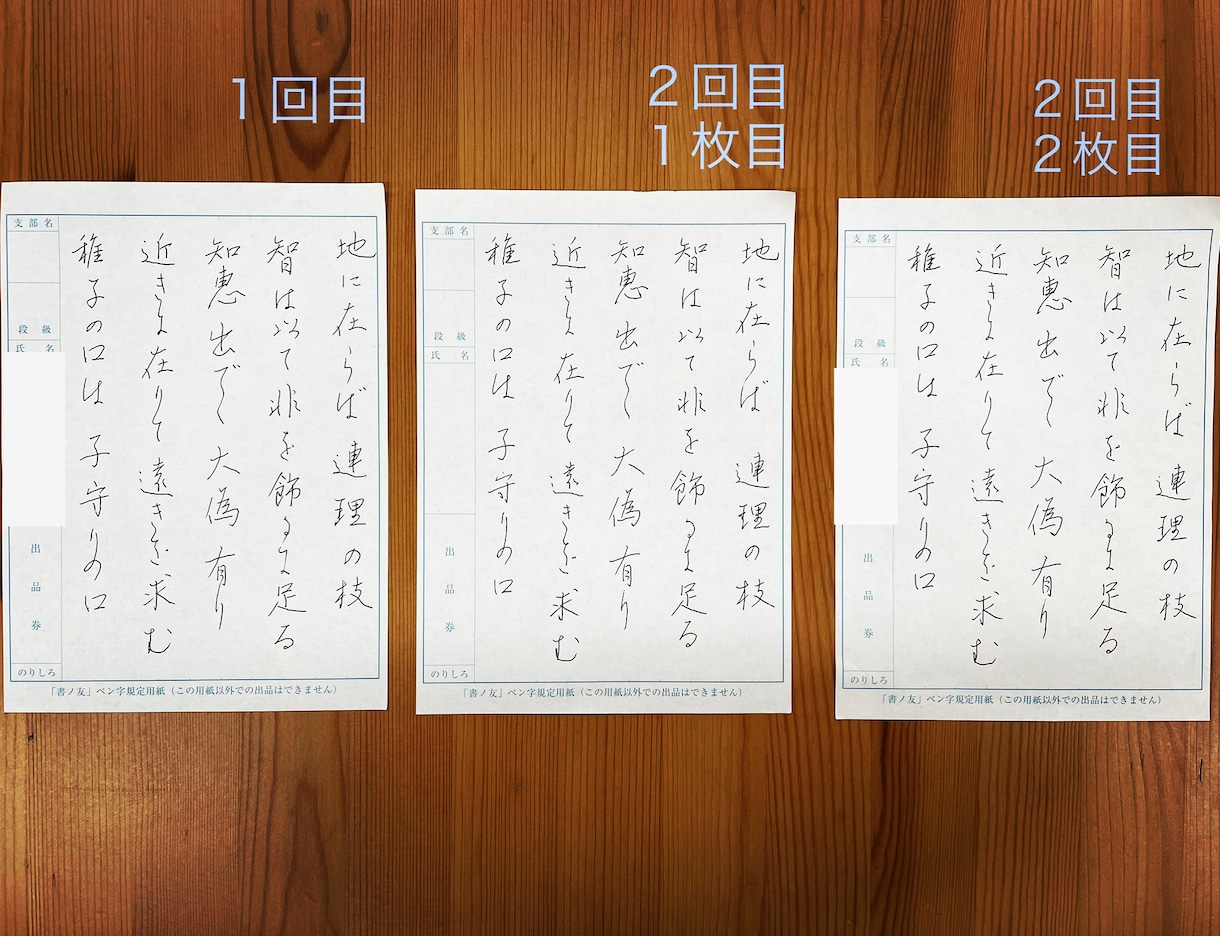 1回目
地に在らば連理の枝
智は以て非を飾るに足る
知恵出でて大偽有り
近きに在りて遠きを求む
稚子の口は子守りの口
支部名
段級
氏名
出品券
のりしろ
「書ノ友」ペン字規定用紙（この用紙以外での出品はできません）
2回目
1枚目
地に在らば連理の枝
智は以て非を飾るに足る
知恵出でて大偽有り
近きに在りて遠きを求む
稚子の口は子守りの口
支部名
段級
氏名
出品券
のりしろ
「書ノ友」ペン字規定用紙（この用紙以外での出品はできません）
2回目
2枚目
地に在らば連理の枝
智は以て非を飾るに足る
知恵出でて大偽有り
近きに在りて遠きを求む
稚子の口は子守りの口
支部名
段級
氏名
出品券
のりしろ
「書ノ友」ペン字規定用紙（この用紙以外での出品はできません）